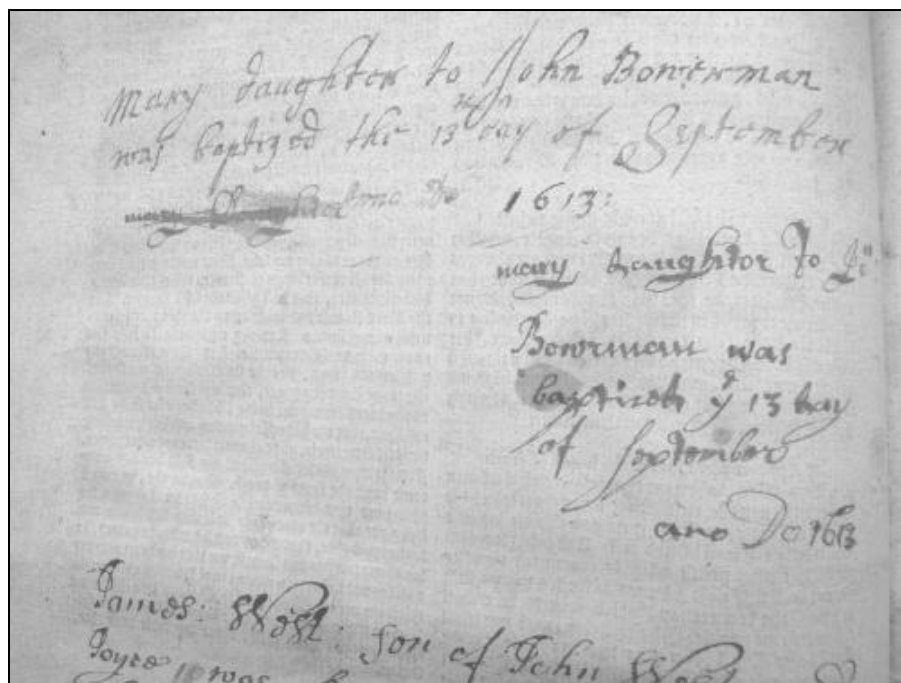 Mary daughter to John Bowerman
was baptized the 13 day of September
mary daughter Anno Do 1613:
mary daughter To Jn
Bowrman was
baptized ye 13 day
of September
Ano Do 1613
James: West: son of John West
Joyce was